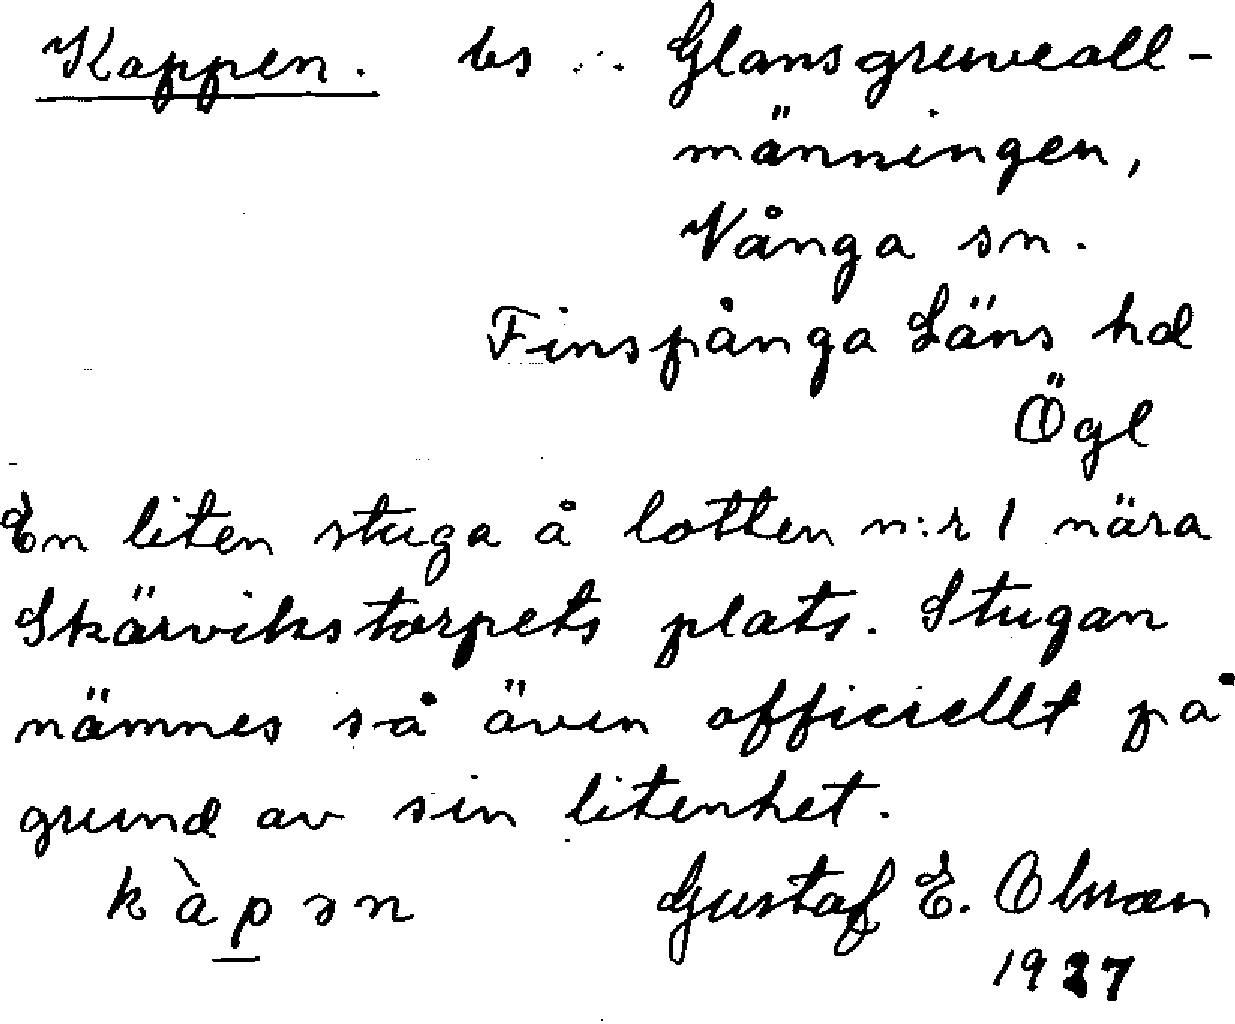 Kappen. bs . . Glansgruveall-
männingen,
Vånga sn.
Finspånga Läns hd
Ögl
En liten stuga å lotten n:r 1 nära
Skärvikstorpets plats. Stugan
nämnes så även officiellt på
grund av sin litenhet.
kàpən Gustaf E. Olman
1927